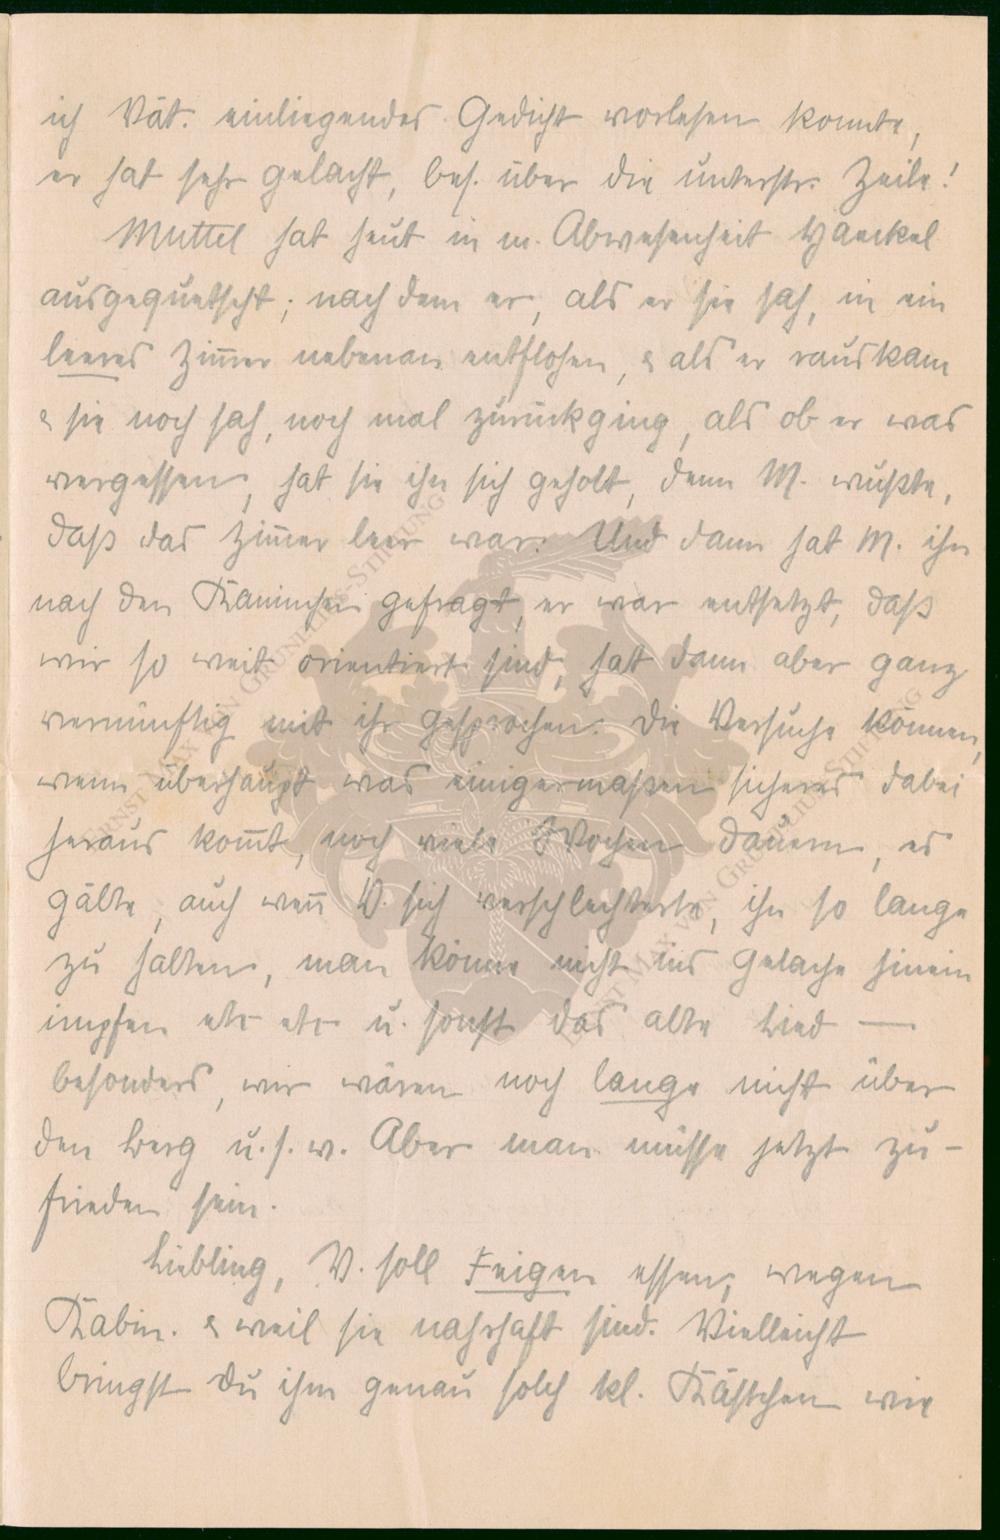 ich Vät. einliegendes Gedicht vorlesen konnte,
er hat sehr gelacht, bes. über die unterstr. Zeile!
Muttel hat heut in m. Abwesenheit Haeckel
ausgequetscht; nach dem er, als er sie sah, in ein
leeres Zim̅er nebenan entflohen, & als er rauskam
& sie noch sah, noch mal zurückging, als ob er was
vergessen, hat sie ihn sich geholt, denn M. wußte,
daß das Zim̅er leer war. Und dann hat M. ihn
nach den Kaninchen gefragt, er war entsetzt, daß
wir so weit orientiert sind, hat dann aber ganz
vernünftig mit ihr gesprochen. Die Versuche können,
wenn überhaupt was einigermaßen sicheres dabei
heraus kom̅t, noch viele Wochen dauern, es
gälte, auch wen̅ V. sich verschlechterte, ihn so lange
zu halten, man könne nicht ins Gelache hinein
impfen etc etc u. sonst das alte Lied —
besonders, wir wären noch lange nicht über
den Berg u. s. w. Aber man müsse jetzt zu-
frieden sein.
Liebling, V. soll Feigen essen, wegen
Kabin. & weil sie nahrhaft sind. Vielleicht
bringst du ihm genau solch kl. Kästchen wie
ERNST MAX VON GRUNELIUS-STIFTUNG
ERNST MAX VON GRUNELIUS-STIFTUNG